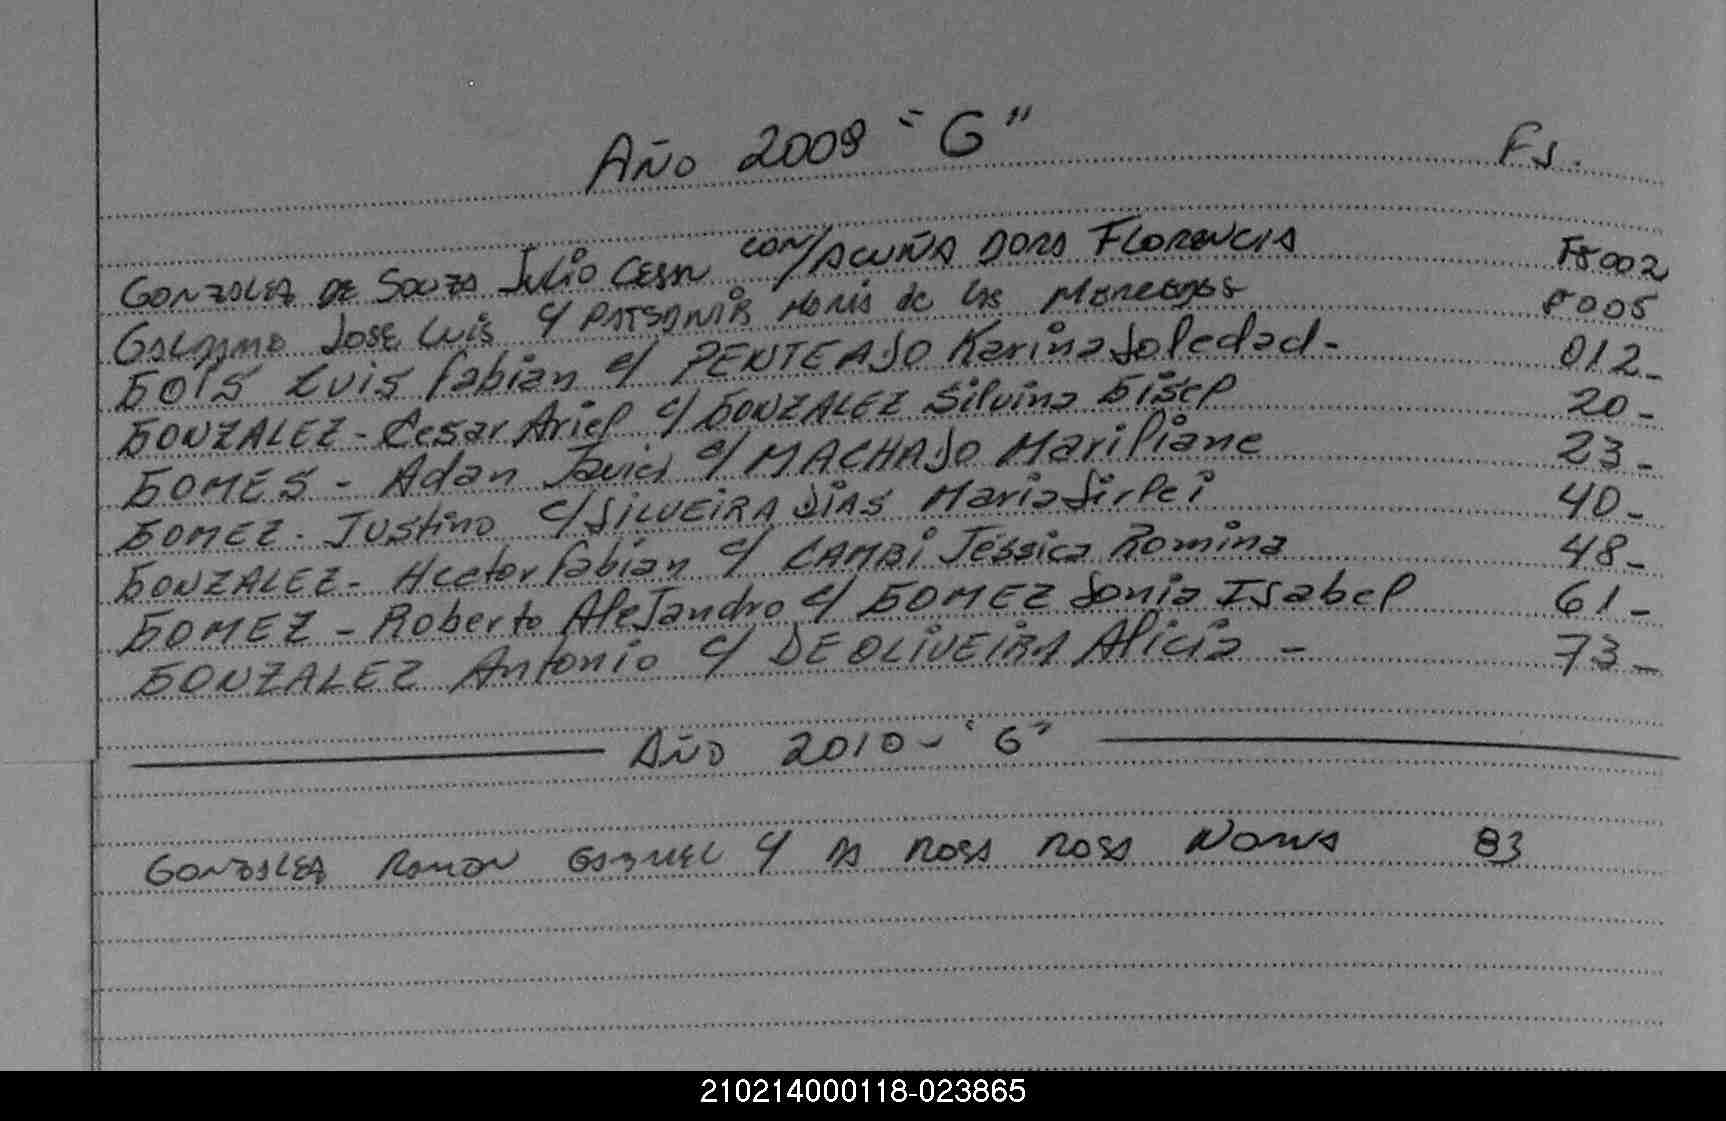 Año 2009 "G" Fs.
GONZALEZ DE SOUZA Julio Cesar con/ ACUÑA DORA FLORENCIA Fs 002
Jose Luis c/ Maria de las Mercedes F 005
GOIS Luis Fabian c/ PENTEADO Karina Soledad - 012-
GONZALEZ - Cesar Ariel c/ GONZALEZ Silvina Gisel 20-
GOMES - Adan Javier c/ MACHADO Mariliane 23-
GOMEZ - Justino c/ SILVEIRA DIAS Maria Sirlei 40-
GONZALEZ - Hector Fabian c/ CAMBI Jessica Romina 48-
GOMEZ - Roberto Alejandro c/ GOMEZ Sonia Isabel 61-
GONZALEZ Antonio c/ DE OLIVEIRA Alicia - 73-
Año 2010 - "G"
GONZALEZ Ramon GABRIEL c/ DA ROSA ROSA NORMA 83
210214000118-023865